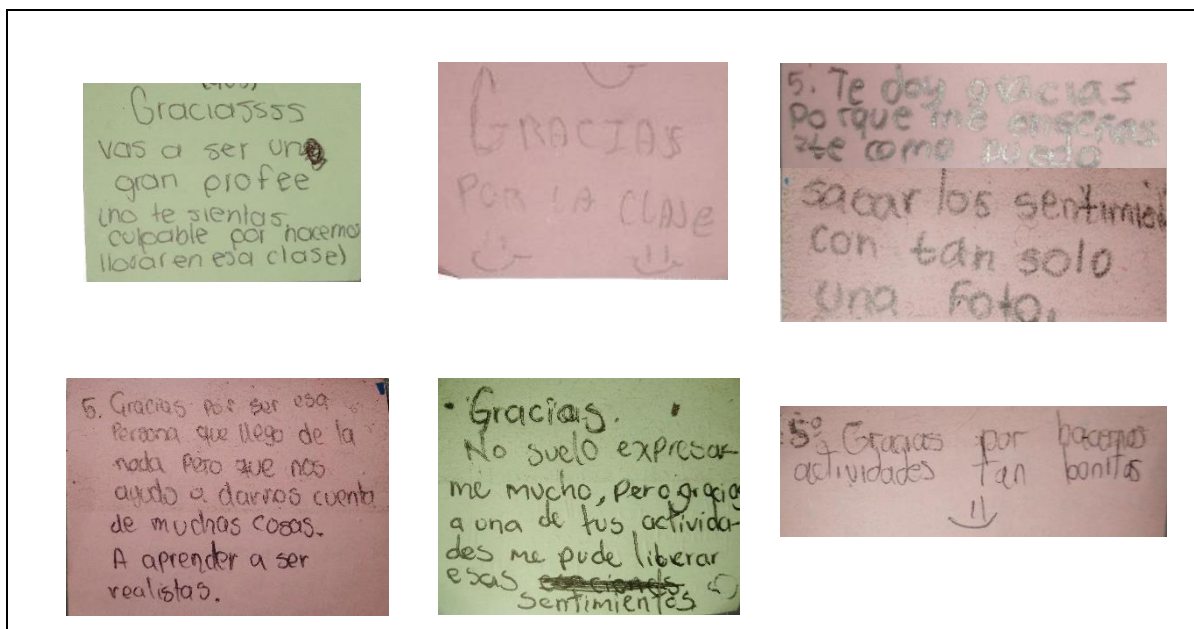 Graciassss
vas a ser un
gran profee
(no te sientas
culpable por hacernos
llorar en esa clase)
GRACIAS
POR LA CLASE
5. Te doy gracias
porque me enseñas
-te como puedo
sacar los sentimie
con tan solo
una foto.
5. Gracias por ser esa
Persona que llego de la
nada Pero que nos
ayudo a darnos cuenta
de muchas cosas.
A aprender a ser
realistas.
· Gracias.
No suelo expresar
me mucho, pero gracias
a una de tus activida-
des me pude liberar
esas
sentimientos
5º Gracias por hacernos
actividades tan bonitas